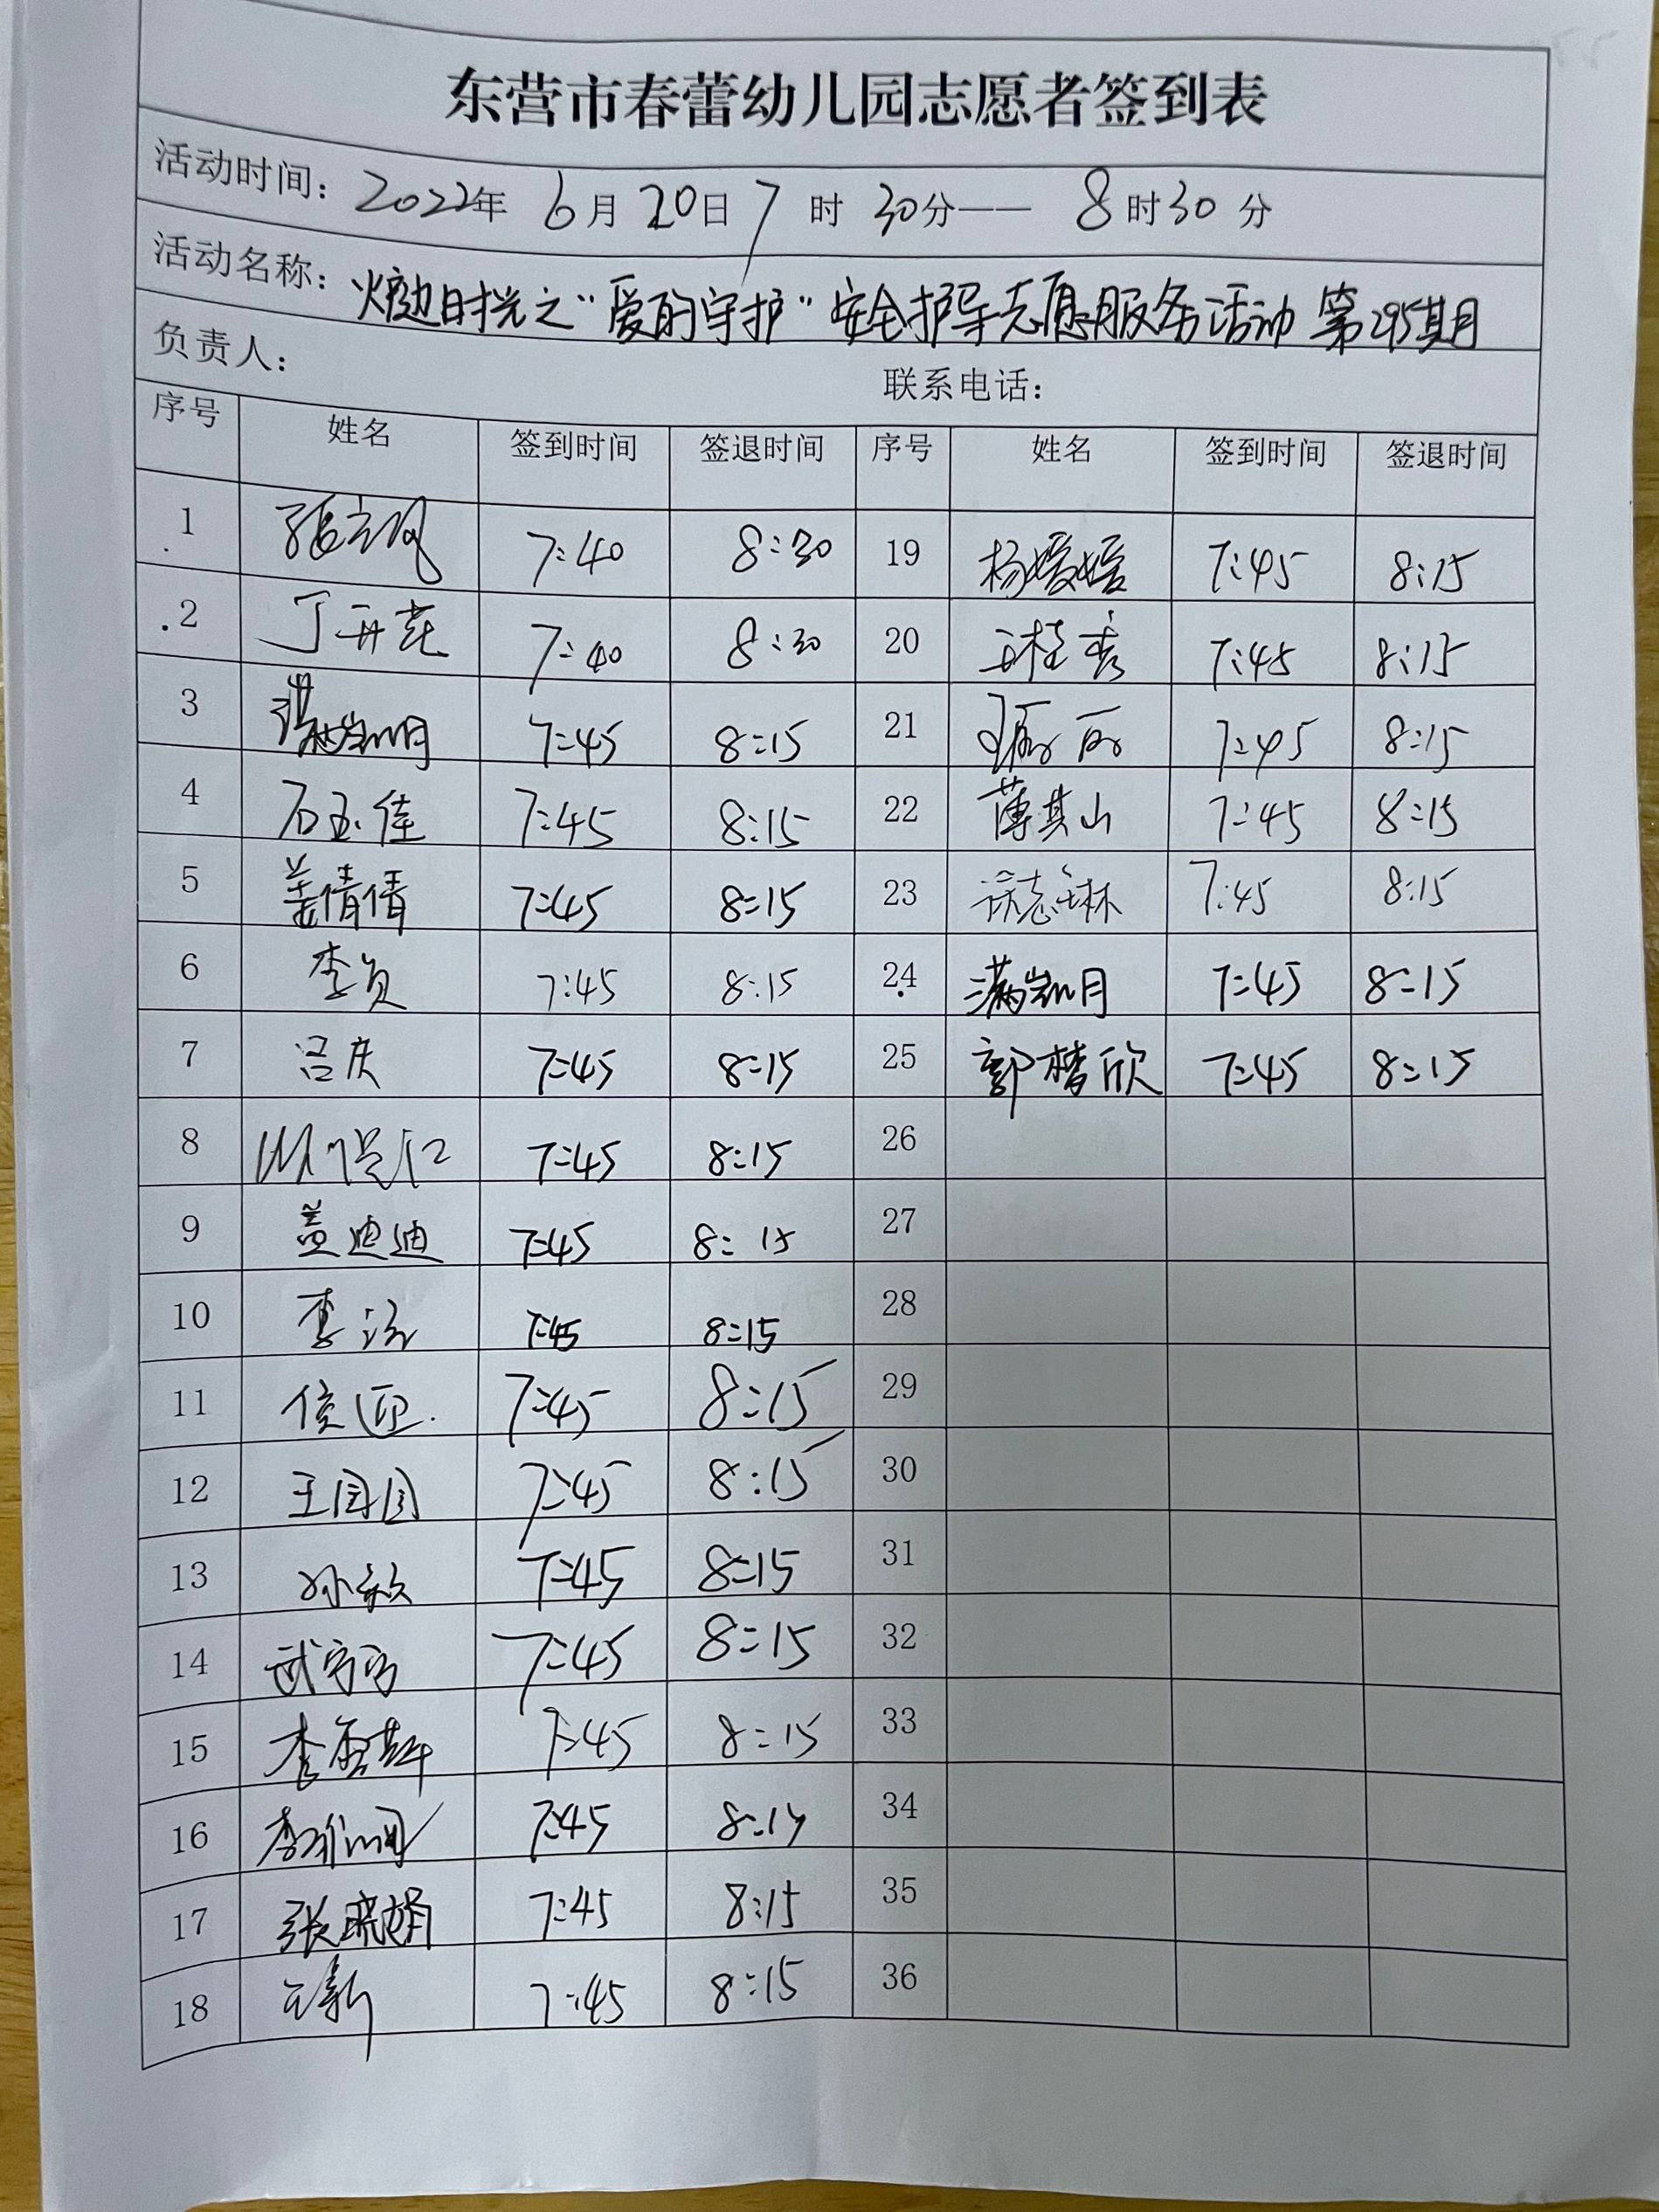 东营市春蕾幼儿园志愿者签到表
活动时间：2022年 6月 20日 7时 30分—— 8时30分
活动名称：时光之“爱的守护”安全护导志愿服务活动 第295期
负责人： 联系电话：
序号 姓名 签到时间 签退时间 序号 姓名 签到时间 签退时间
1 7:40 8:30 19 杨媛媛 7:45 8:15
2 丁 7:40 8:30 20 王桂秀 7:45 8:15
3 7:45 8:15 21 丽 7:45 8:15
4 石玉佳 7:45 8:15 22 薄其山 7:45 8:15
5 姜倩倩 7:45 8:15 23 7:45 8:15
6 李贞 7:45 8:15 24 满岩月 7:45 8:15
7 吕庆 7:45 8:15 25 郭梦欣 7:45 8:15
8 7:45 8:15 26
9 盖迪迪 7:45 8:15 27
10 李 7:45 8:15 28
11 7:45 8:15 29
12 王圆圆 7:45 8:15 30
13 孙 7:45 8:15 31
14 武 7:45 8:15 32
15 李 7:45 8:15 33
16 李 7:45 8:15 34
17 张晓娟 7:45 8:15 35
18 王新 7:45 8:15 36